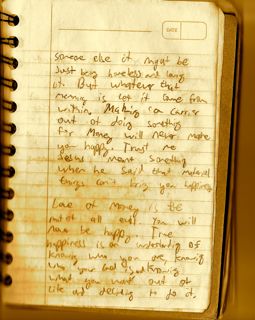 DATE
someone else it might be
Just being homeless and loving
it. But whatever that
meaning is let it come from
within. Making a carrier
out of doing something
for money will never make
you happy. Trust me
Jesus meant something
when he said that material
things can't bring you happiness
Love of Money is the
root of all evil. You will
never be happy. True
happiness is an understanding of
knowing who you are, knowing
who your God is and knowing
what you want out of
life and deciding to do it.